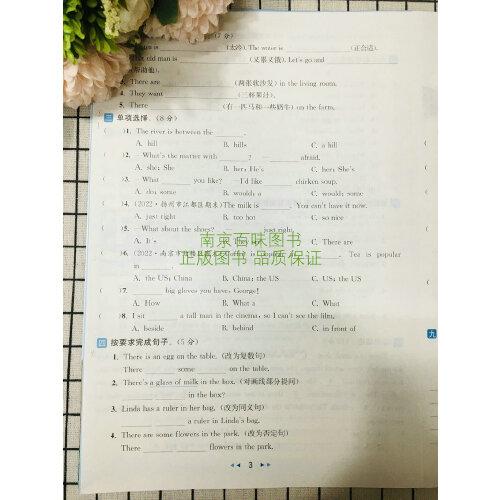 (7 分)
is ______ (太冷). The water is ______ (正合适).
old man is ______ (又累又饿). Let's go and
(帮助他).
3. There are ______ (两张软沙发) in the living room.
4. They want ______ (三杯果汁).
5. There ______ (有一匹马和一些奶牛) on the farm.
三 单项选择。(8 分)
( )1. The river is between the ______.
A. hill B. hills C. a hill
( )2. —What's the matter with ______? —______ afraid.
A. she; She B. her; He's C. her; She's
( )3. —What ______ you like? —I'd like ______ chicken soup.
A. do; some B. would; a C. would; some
( )4. (2022·扬州市江都区期末) The milk is ______. You can't have it now.
A. just right B. too hot C. so nice
( )5. —What about the shoes? —______ just right.
A. It's B. They C. There are
( )6. (2022·南京市 Coffee is popular in ______. Tea is popular
in ______.
A. the US; China B. China; the US C. US; the US
( )7. ______ big gloves you have, George!
A. How B. What a C. What
( )8. I sit ______ a tall man in the cinema, so I can't see the film.
A. beside B. behind C. in front of
四 按要求完成句子。(5 分)
1. There is an egg on the table. (改为复数句)
There ______ some ______ on the table.
2. There's a glass of milk in the box. (对画线部分提问)
______ in the box?
3. Linda has a ruler in her bag. (改为同义句)
______ a ruler in Linda's bag.
4. There are some flowers in the park. (改为否定句)
There ______ flowers in the park.
3
九
南京百味图书
正版图书 品质保证